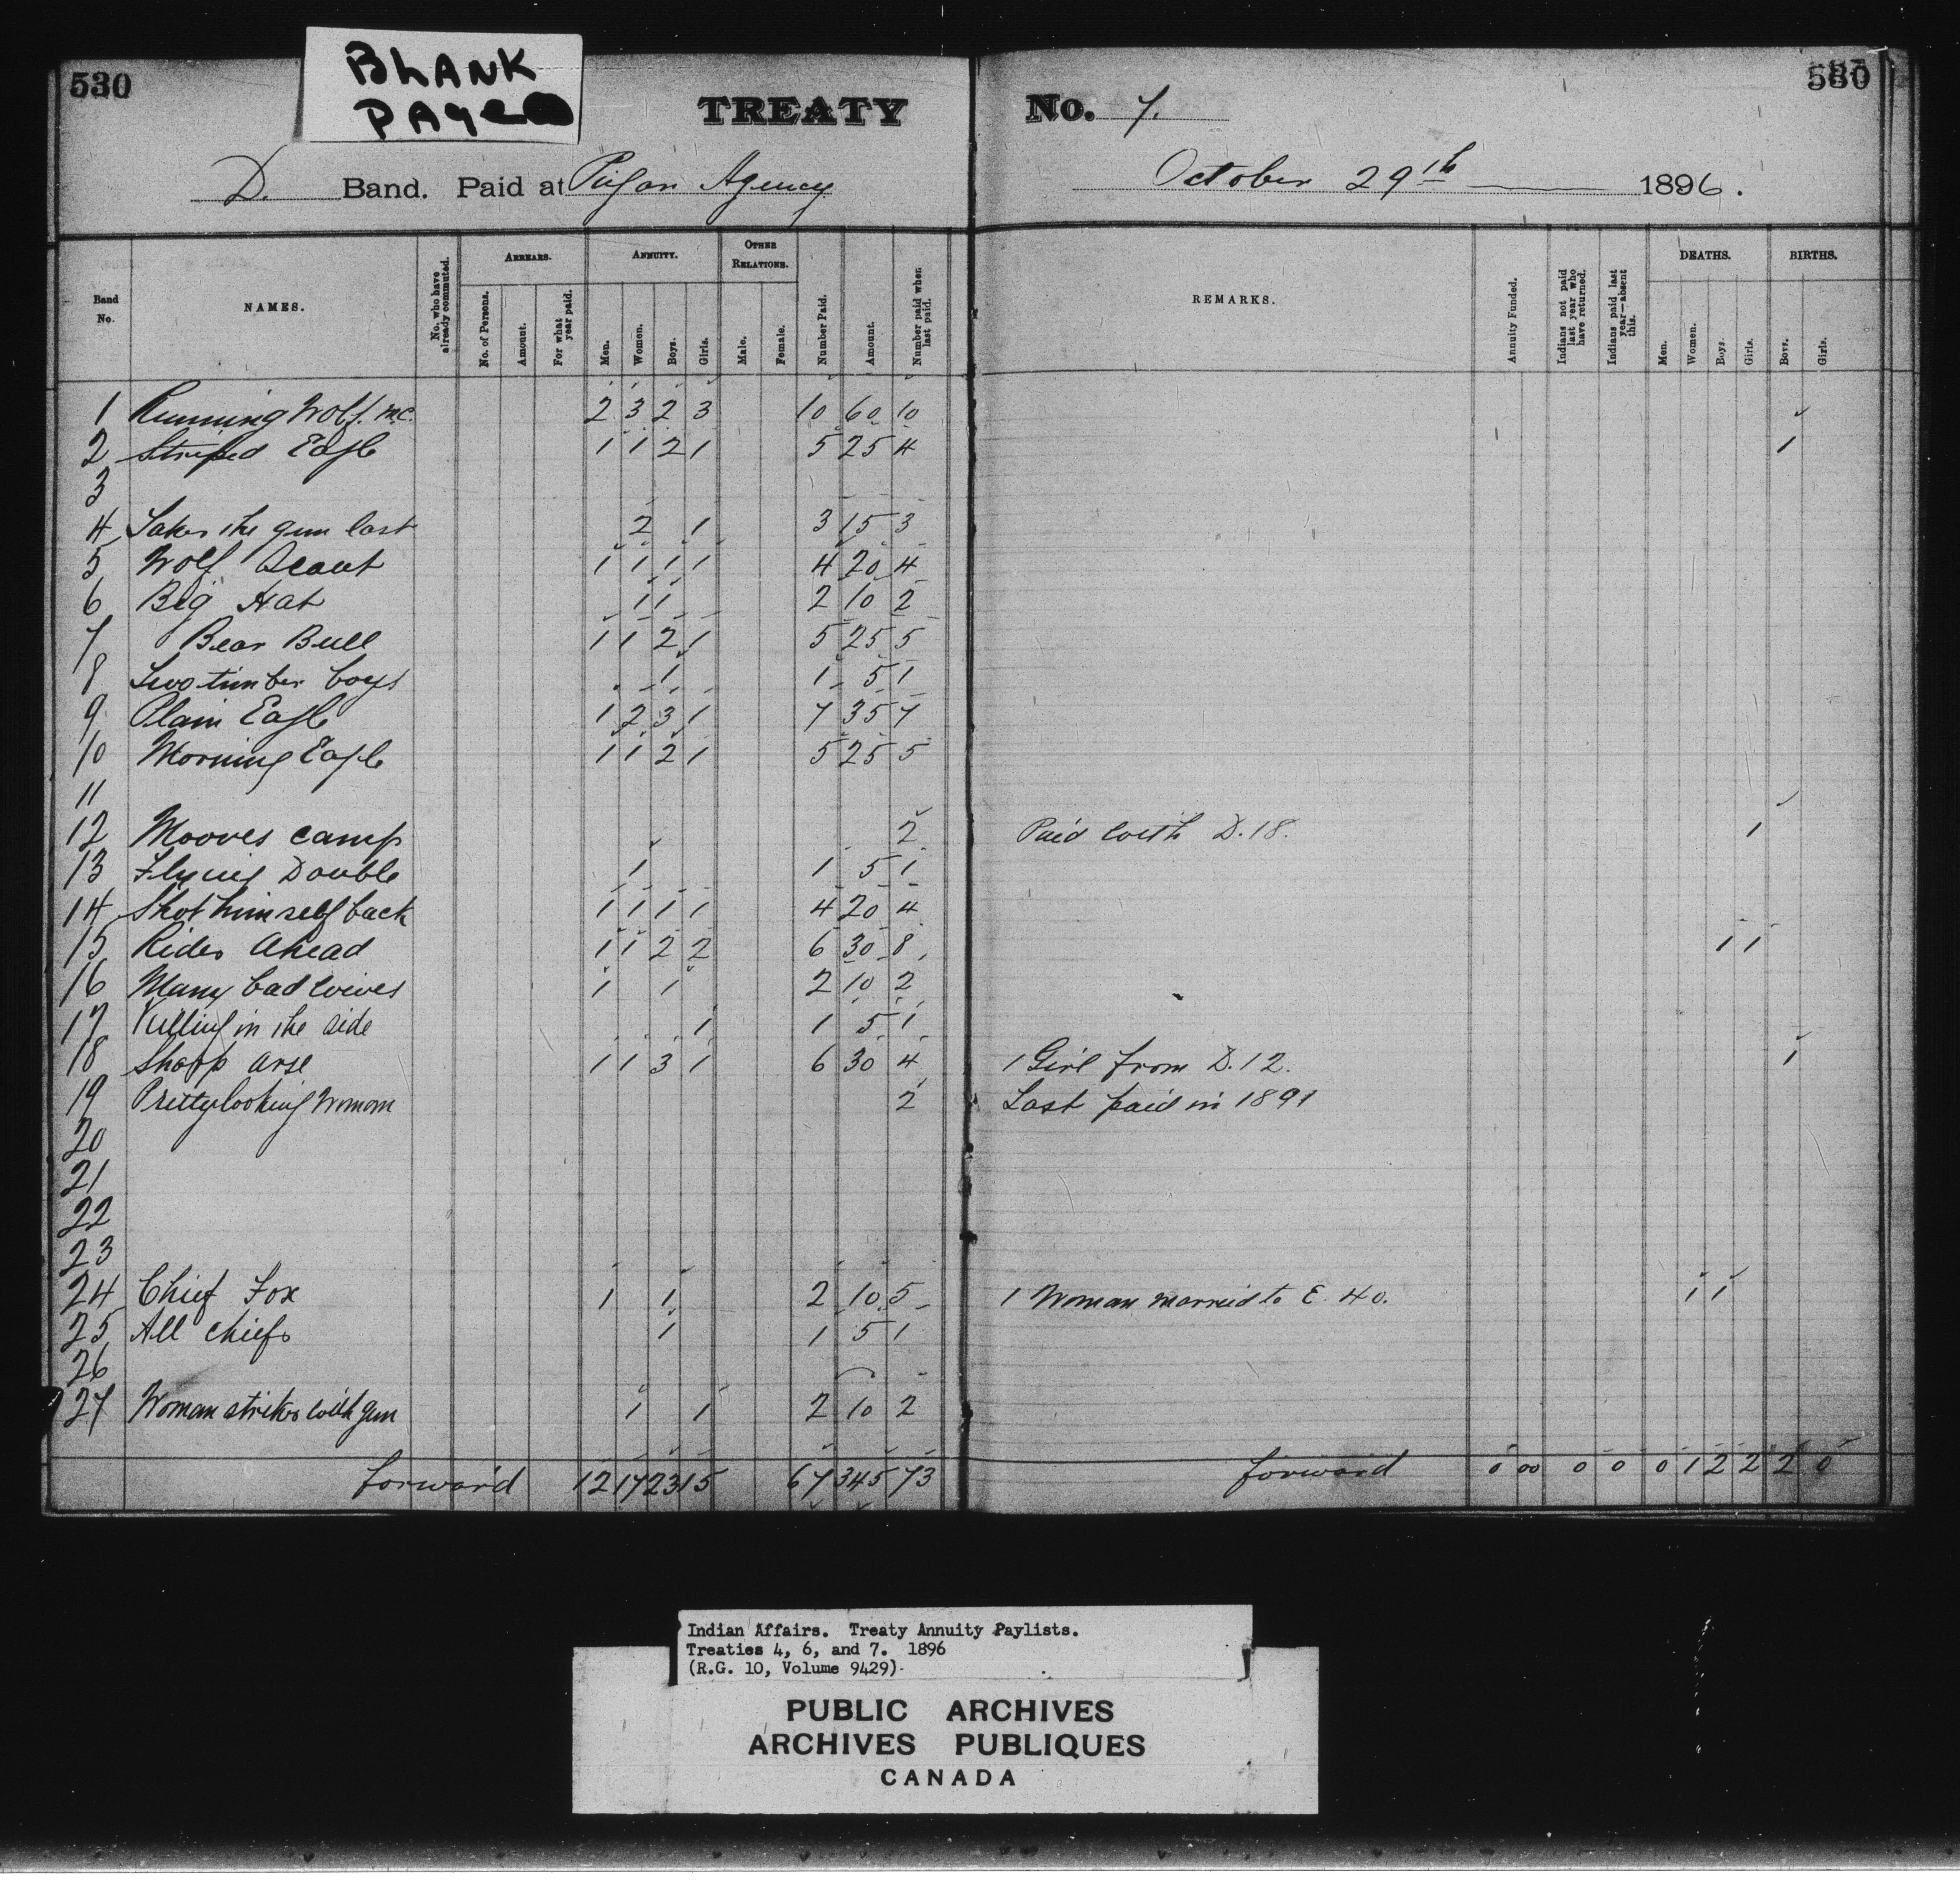 530
BLANK
PAGE
TREATY No. 7.
580
D. Band. Paid at Piegan Agency October 29th 1896.
Band No.
NAMES.
No. who have already commuted.
ARREARS.
No. of Persons.
Amount.
For what year paid.
ANNUITY.
Men.
Women.
Boys.
Girls.
OTHER RELATIONS.
Male.
Female.
Number Paid.
Amount.
Number paid when last paid.
REMARKS.
Annuity Funded.
Indians not paid last year who have returned.
Indians paid last year—absent this.
DEATHS.
Men.
Women.
Boys.
Girls.
BIRTHS.
Boys.
Girls.
1 Running Wolf. m.c. 2 3 2 3 10 60 10
2 Striped Eagle 1 1 2 1 5 25 4 1
3
4 Takes the gun last 2 1 3 15 3
5 Wolf Scout 1 1 1 1 4 20 4
6 Big Hat 1 1 2 10 2
7 Bear Bull 1 1 2 1 5 25 5
8 Two timber boys 1 1 5 1
9 Plain Eagle 1 2 3 1 7 35 7
10 Morning Eagle 1 1 2 1 5 25 5
11
12 Mooves camp 2 Paid with D. 18. 1
13 Flying Double 1 1 5 1
14 Shot himself back 1 1 1 1 4 20 4
15 Rides Ahead 1 1 2 2 6 30 8 1 1
16 Many bad wives 1 1 2 10 2
17 Pulling in the side 1 1 5 1
18 Sharp arse 1 1 3 1 6 30 4 1 Girl from D. 12. 1
19 Pretty looking Woman 2 Last paid in 1891
20
21
22
23
24 Chief Fox 1 1 2 10 5 1 Woman married to E. 40. 1 1
25 All chiefs 1 1 5 1
26
27 Woman strikes with gun 1 1 2 10 2
forward 12 17 23 15 67 345 73 forward 0 00 0 0 0 1 2 2 2 0
Indian Affairs. Treaty Annuity Paylists.
Treaties 4, 6, and 7. 1896
(R.G. 10, Volume 9429)
PUBLIC ARCHIVES
ARCHIVES PUBLIQUES
CANADA